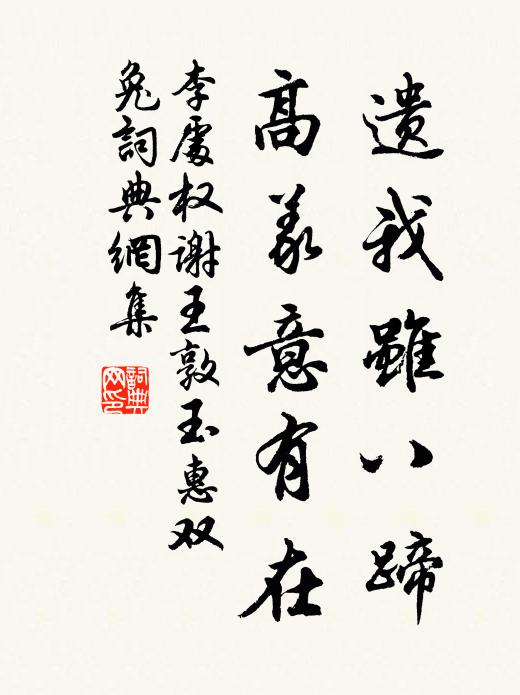 遺我雖八蹄
高義意有在
李處权谢王敦玉惠双
兔詞典網集
詞典网印